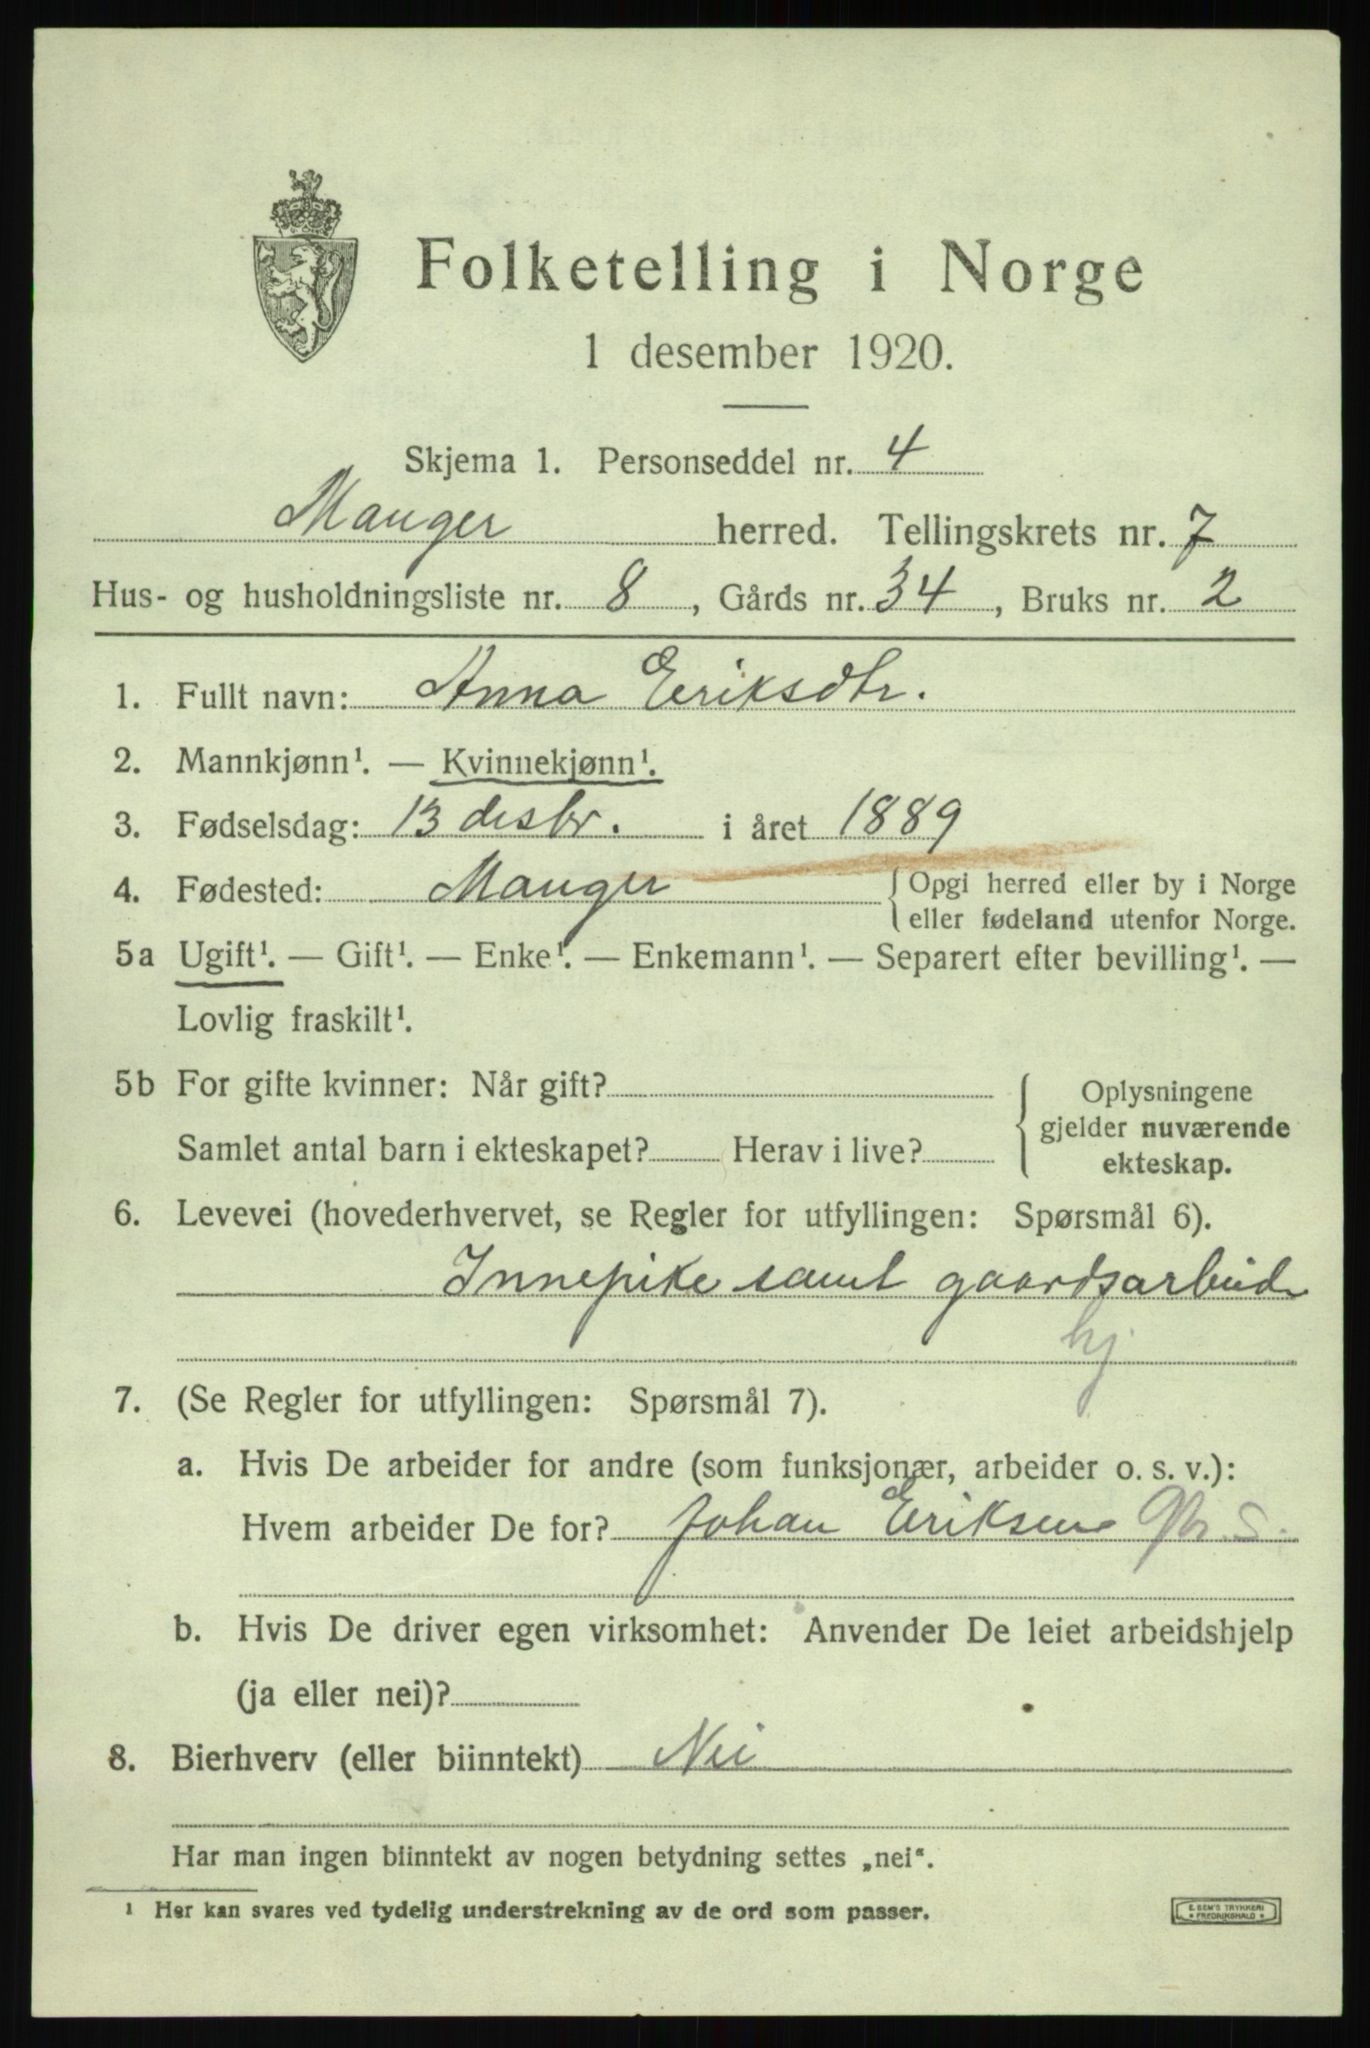 Folketelling i Norge
1 desember 1920.
Skjema 1. Personseddel nr. 4
Manger herred. Tellingskrets nr. 7
Hus- og husholdningsliste nr. 8, Gårds nr. 34, Bruks nr. 2
1. Fullt navn: Anna Eriksdtr.
2. Mannkjønn¹. — Kvinnekjønn¹.
3. Fødselsdag: 13 desbr. i året 1889
4. Fødested: Manger { Opgi herred eller by i Norge
eller fødeland utenfor Norge.
5a Ugift¹. — Gift¹. — Enke¹. — Enkemann¹. — Separert efter bevilling¹. —
Lovlig fraskilt¹.
5b For gifte kvinner: Når gift?
Samlet antal barn i ekteskapet? Herav i live?
{ Oplysningene
gjelder nuværende
ekteskap.
6. Levevei (hovederhvervet, se Regler for utfyllingen: Spørsmål 6).
Innepike samt gaardsarbeide
hj
7. (Se Regler for utfyllingen: Spørsmål 7).
a. Hvis De arbeider for andre (som funksjonær, arbeider o. s. v.):
Hvem arbeider De for? Johan Eriksen
b. Hvis De driver egen virksomhet: Anvender De leiet arbeidshjelp
(ja eller nei)?
8. Bierhverv (eller biinntekt) Nei
Har man ingen biinntekt av nogen betydning settes „nei“.
¹ Her kan svares ved tydelig understrekning av de ord som passer.
E. SEM'S TRYKKERI
* FREDRIKSHALD *